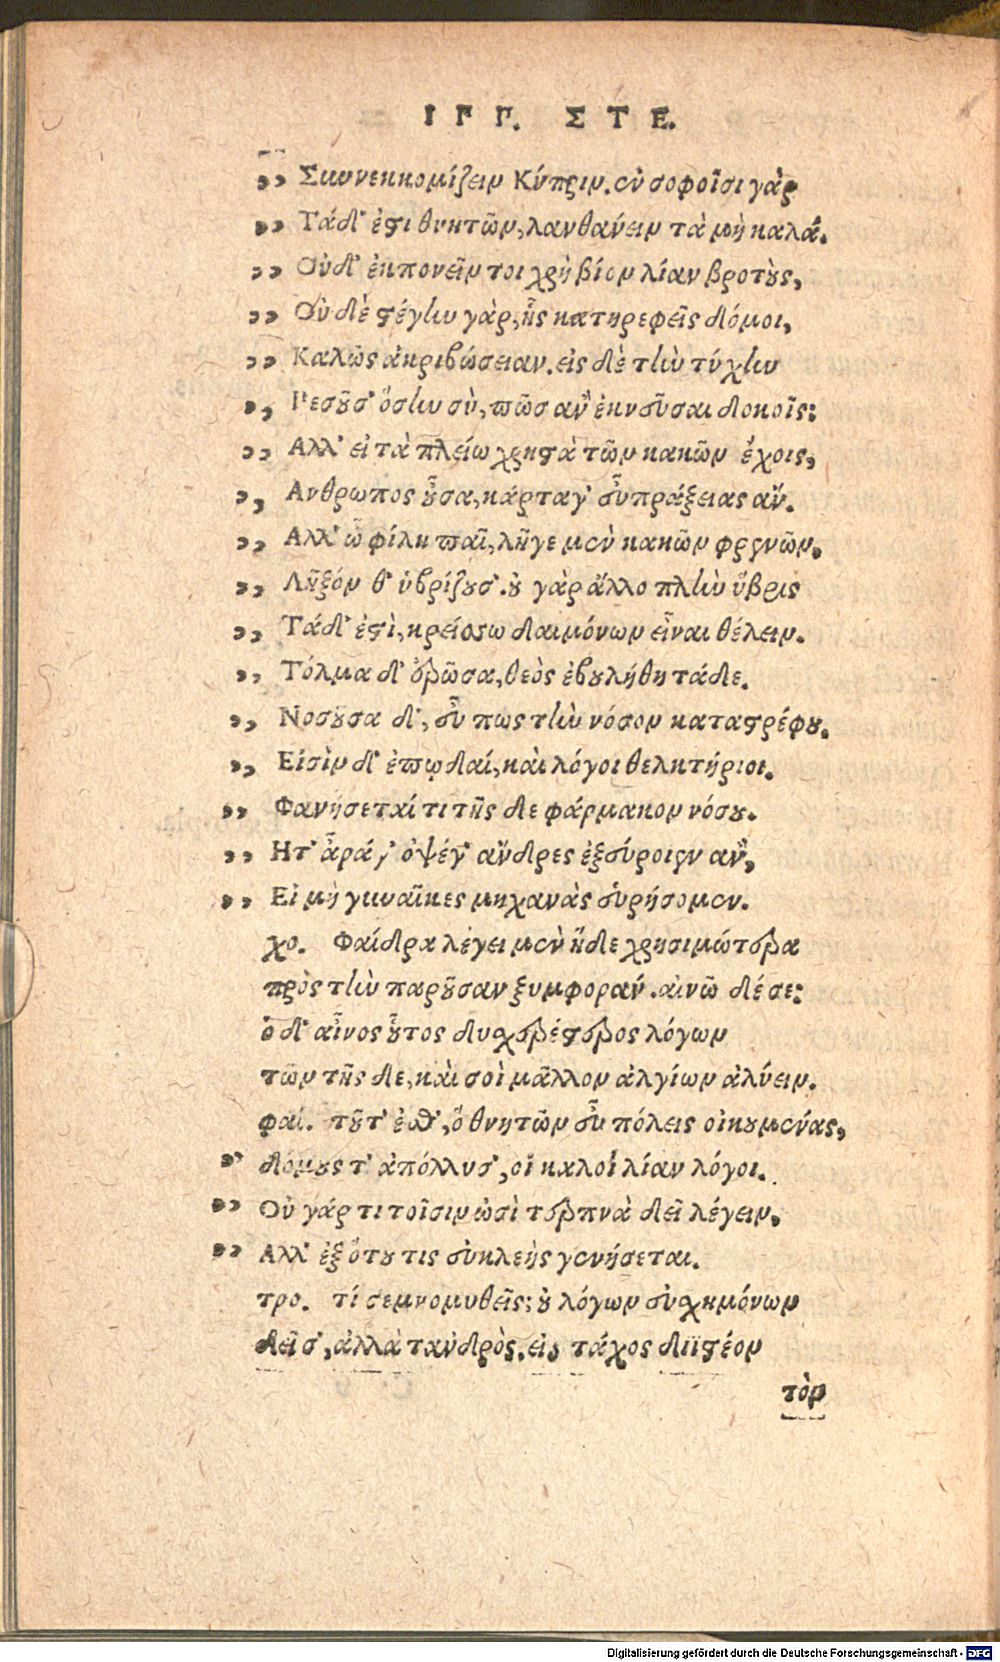 ΙΓΓ. ΣΤΕ.
,, Σιωνεκκομίζειν Κύπριν. ἐν σοφοῖσι γὰρ
,, Τάδ' ἐστι θνητῶν, λανθάνειν τὰ μὴ καλά.
,, Οὐδ' ἐκπονεῖν τοι χρὴ βίον λίαν βροτοὺς,
,, Οὐ δὲ στέγην γὰρ, ἧς κατηρεφεῖς δόμοι,
,, Καλῶς ἀκριβώσειαν. εἰς δὲ τὴν τύχην
,, Πεσοῦσ' ὅσην σὺ, πῶς ἂν ἐκνεῦσαι δοκοῖς;
,, Αλλ' εἰ τὰ πλείω χρηστὰ τῶν κακῶν ἔχοις,
,, Ανθρωπος οὖσα, κάρταγ' εὖ πράξειας ἄν.
,, Αλλ' ὦ φίλη παῖ, λῆγε μὲν κακῶν φρενῶν,
,, Λῆξόν θ' ὑβρίζουσ'. οὐ γὰρ ἄλλο πλὴν ὕβρις
,, Τάδ' ἐστὶ, κρείσσω δαιμόνων εἶναι θέλειν.
,, Τόλμα δ' ἐρῶσα, θεὸς ἐβουλήθη τάδε.
,, Νοσοῦσα δ', εὖ πως τὴν νόσον καταστρέφου.
,, Εἰσὶν δ' ἐπῳδαί, καὶ λόγοι θελκτήριοι.
,, Φανήσεταί τι τῆς δε φάρμακον νόσου.
,, Ητ' ἆρά γ' ὀψέγ' ἄνδρες ἐξεύροιεν ἂν,
,, Εἰ μὴ γυναῖκες μηχανὰς εὑρήσομεν.
χο. Φαίδρα λέγει μὲν ἥδε χρησιμώτερα
πρὸς τὴν παροῦσαν ξυμφοράν. αἰνῶ δέ σε;
ὁ δ' αἶνος οὗτος δυσχερέστερος λόγων
τῶν τῆς δε, καὶ σοὶ μᾶλλον ἀλγίων ἀλύειν.
φαί. τοῦτ' ἐσθ', ὃ θνητῶν εὖ πόλεις οἰκουμένας,
,, δόμους τ' ἀπόλλυσ', οἱ καλοὶ λίαν λόγοι.
,, Οὐ γάρ τι τοῖσιν ὠσὶ τερπνὰ δεῖ λέγειν,
,, Αλλ' ἐξ ὅτου τις εὐκλεὴς γενήσεται.
τρο. τί σεμνομυθεῖς; οὐ λόγων εὐσχημόνων
δεῖ σ', ἀλλὰ τἀνδρὸς. εἰς τάχος διϊστέον
τὸν
Digitalisierung gefördert durch die Deutsche Forschungsgemeinschaft - DFG